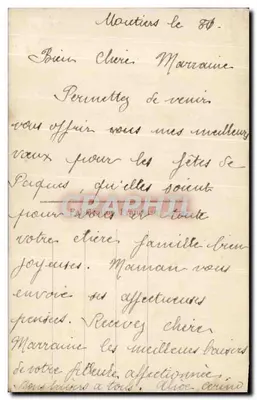 Moutiers le
Bien chère Marraine
Permettez de venir
vous offrir tous mes meilleurs
vœux pour les fêtes de
Pâques qu'elles soient
pour vous et toute
votre chère famille bien
joyeuses. Maman vous
envoie ses affectueuses
pensées. Recevez chère
Marraine les meilleurs baisers
de votre filleule affectionnée
Bons baisers à tous. Alice